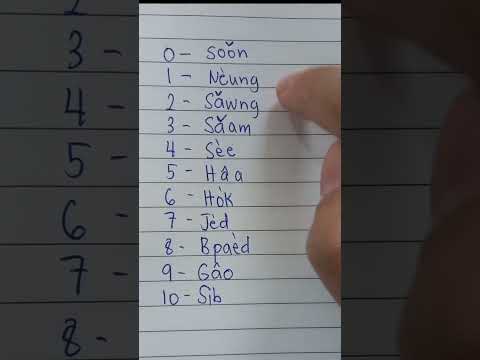 0 - Soŏn
1 - Nèung
2 - Săwng
3 - Săam
4 - Sèe
5 - Hâa
6 - Hòk
7 - Jèd
8 - Bpaèd
9 - Gâo
10 - Sìb
3 -
4 -
5 -
6 -
7 -
8 -